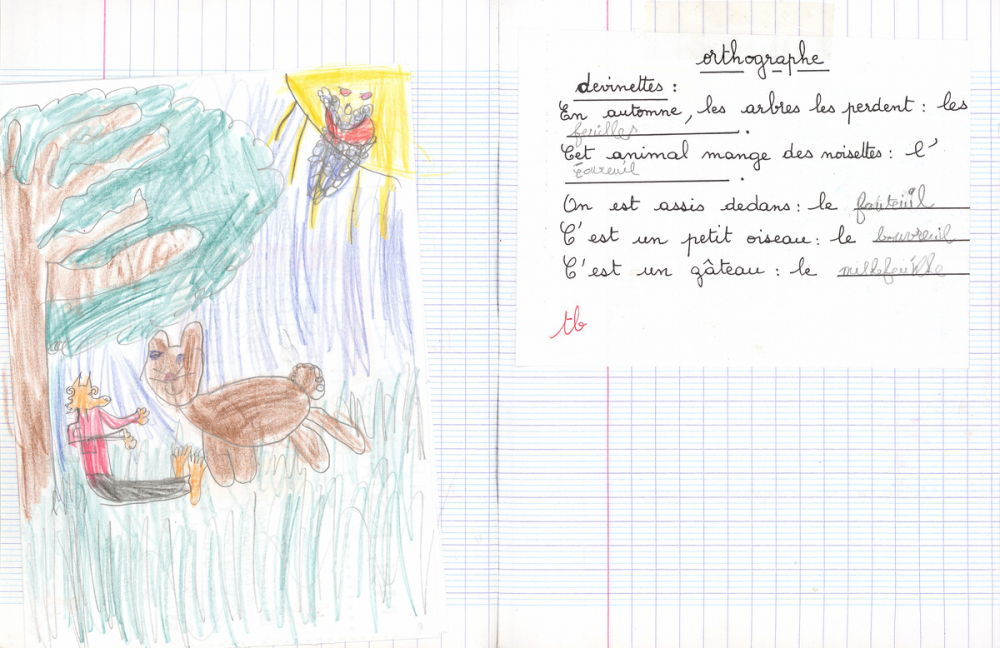 orthographe
devinettes :
En automne, les arbres les perdent : les
feuilles .
Cet animal mange des noisettes : l'
écureuil .
On est assis dedans : le fauteuil
C'est un petit oiseau : le bouvreuil
C'est un gâteau : le millefeuille
tb